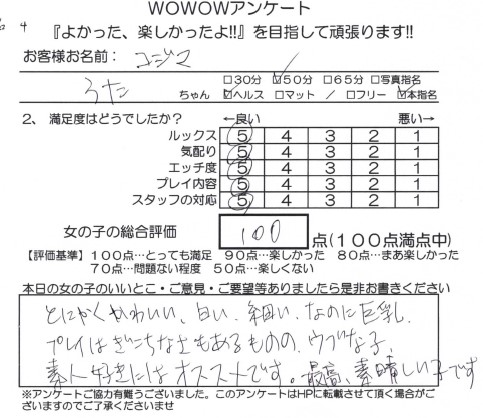 WOWOWアンケート
4
『よかった、楽しかったよ!!』を目指して頑張ります!!
お客様お名前: コジマ
うた ちゃん □30分 ☑50分 □65分 □写真指名
☑ヘルス □マット / □フリー ☑本指名
2、満足度はどうでしたか? ←良い 悪い→
ルックス 5 4 3 2 1
気配り 5 4 3 2 1
エッチ度 5 4 3 2 1
プレイ内容 5 4 3 2 1
スタッフの対応 5 4 3 2 1
女の子の総合評価 100 点(100点満点中)
【評価基準】100点…とっても満足 90点…楽しかった 80点…まあ楽しかった
70点…問題ない程度 50点…楽しくない
本日の女の子のいいとこ・ご意見・ご要望等ありましたら是非お書きください
とにかくかわいい、白い、細い、なのに巨乳、
プレイはぎこちな さもあるものの、ウブな子、
素人好きにはオススメです。最高、素晴しい子です
※アンケートご協力有難うございました。このアンケートはHPに転載させて頂く場合がご
ざいますのでご了承くださいませ